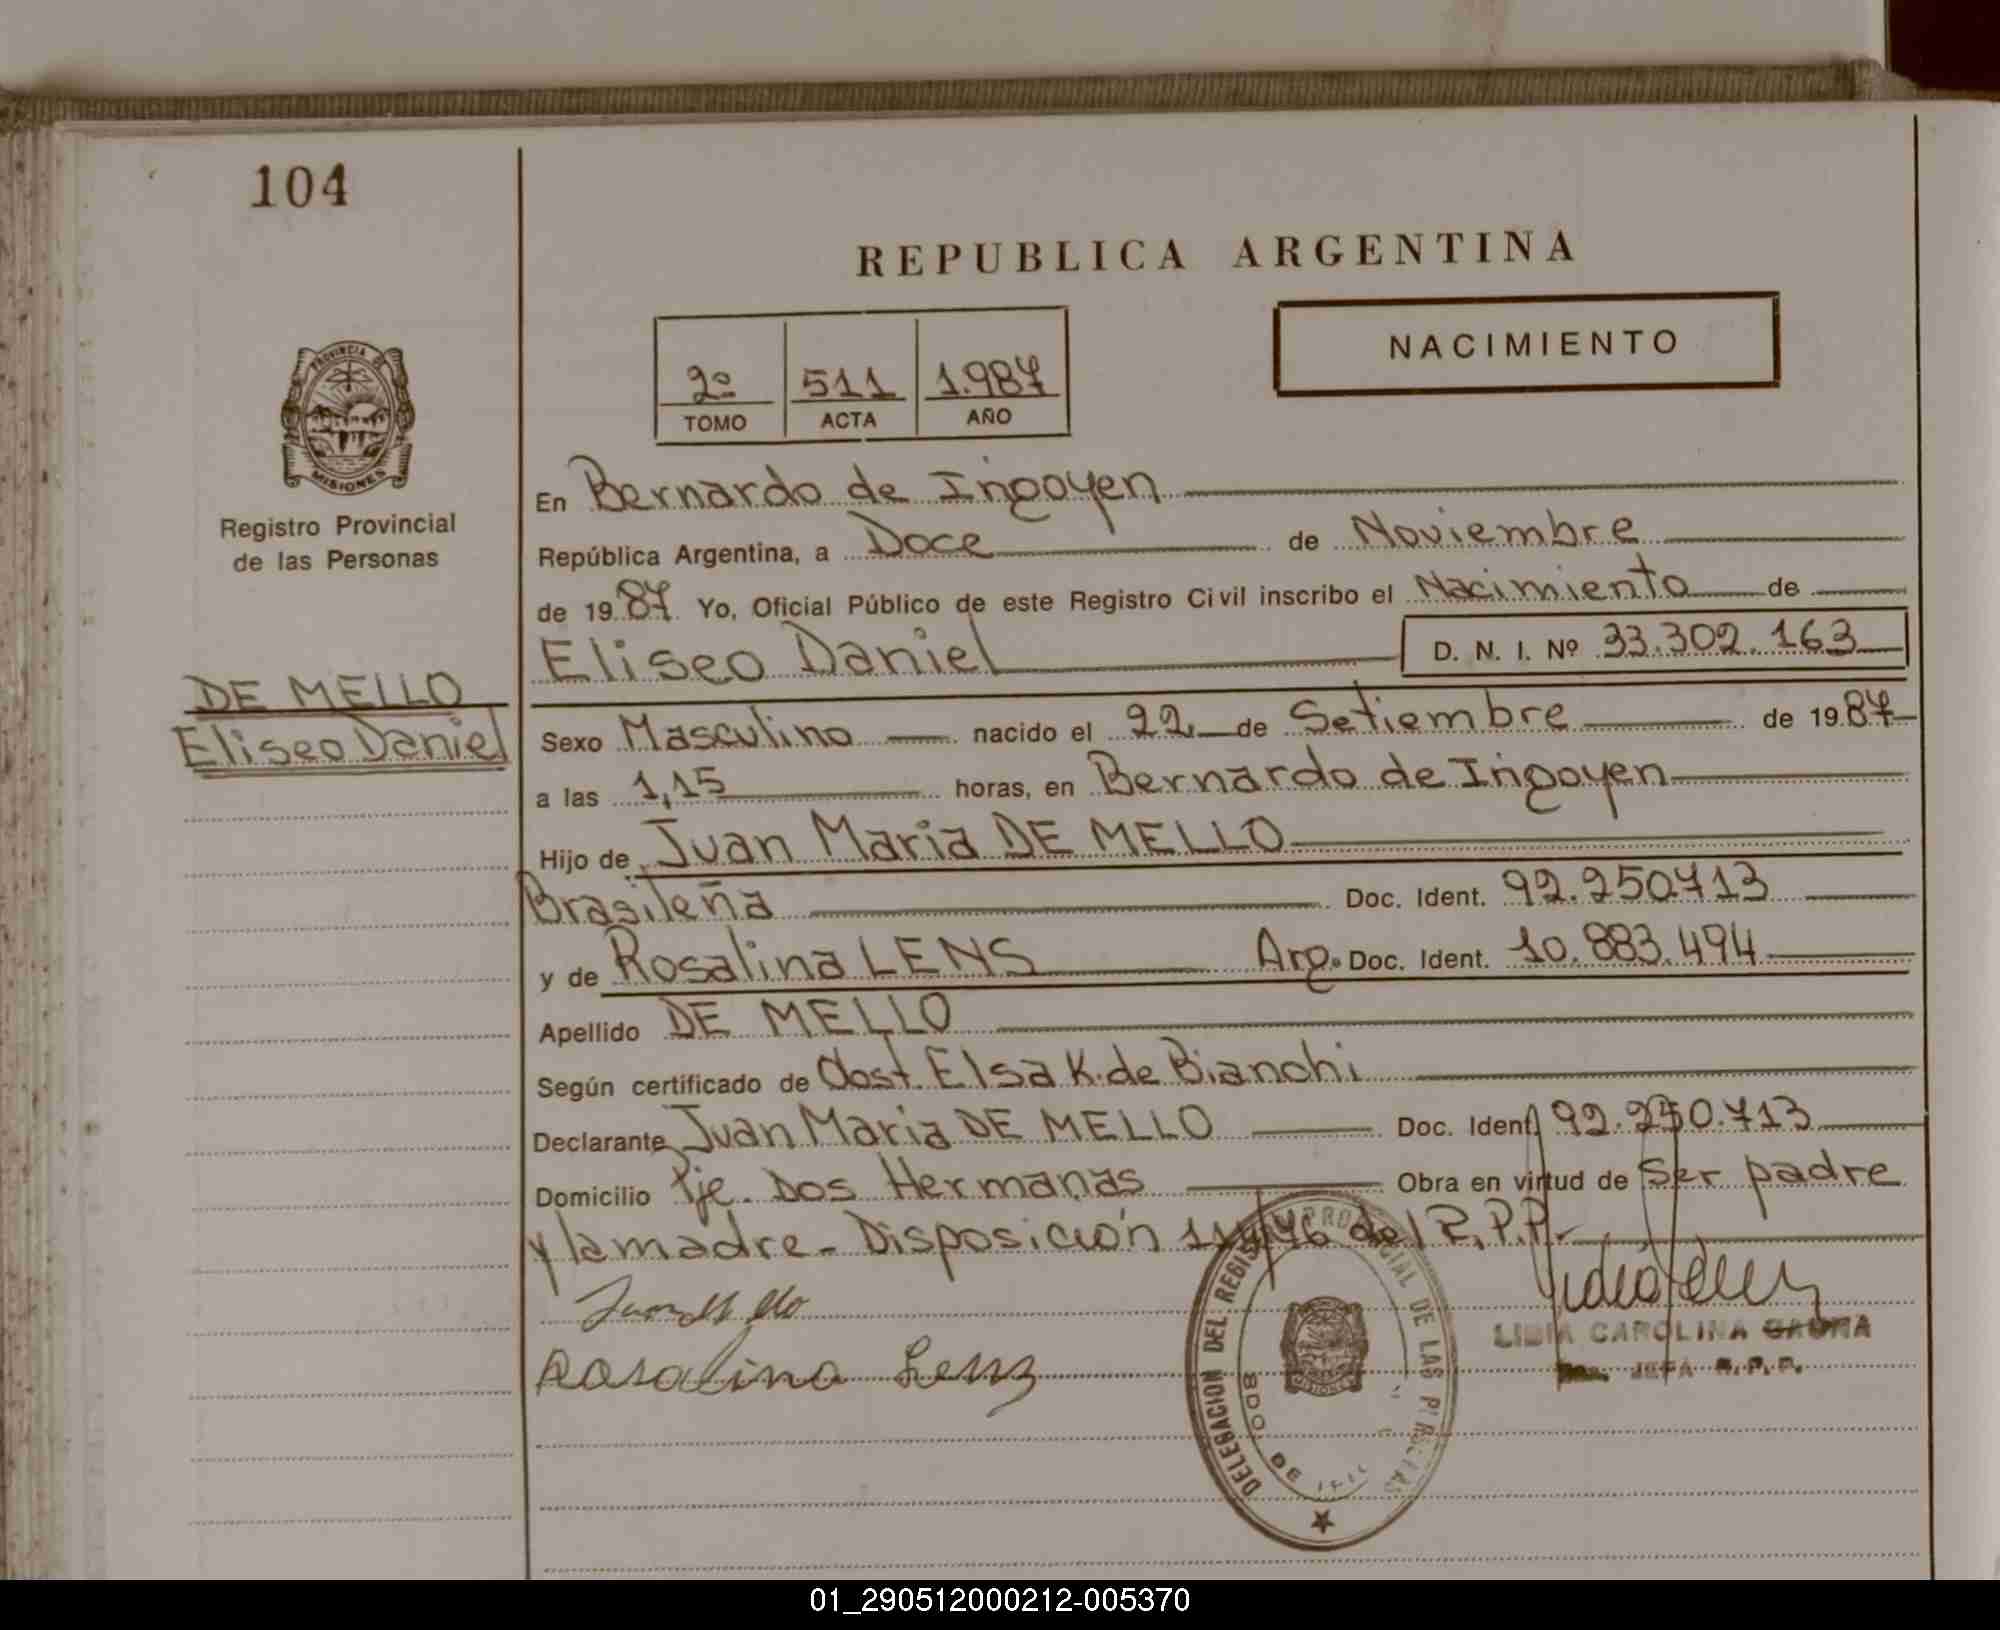 104
REPUBLICA ARGENTINA
2º 511 1.987
TOMO ACTA AÑO
NACIMIENTO
PROVINCIA DE
MISIONES
Registro Provincial
de las Personas
DE MELLO
Eliseo Daniel
En Bernardo de Irigoyen
República Argentina, a Doce de Noviembre
de 1987 Yo, Oficial Público de este Registro Civil inscribo el Nacimiento de
Eliseo Daniel D. N. I. Nº 33.302.163
Sexo Masculino nacido el 22 de Setiembre de 1987
a las 1,15 horas, en Bernardo de Irigoyen
Hijo de Juan Maria DE MELLO
Brasileña Doc. Ident. 92.250.713
y de Rosalina LENS Arg. Doc. Ident. 10.883.494
Apellido DE MELLO
Según certificado de Obst. Elsa K. de Bianchi
Declarante Juan Maria DE MELLO Doc. Ident. 92.250.713
Domicilio Pje. Dos Hermanas Obra en virtud de Ser padre
y la madre - Disposición del R.P.P.
Rosalina Lenz
DELEGACION DEL REGISTRO PROVINCIAL DE LAS PERSONAS
BDO. DE
MISIONES
LIDIA CAROLINA
JEFA R.P.P.
01_290512000212-005370